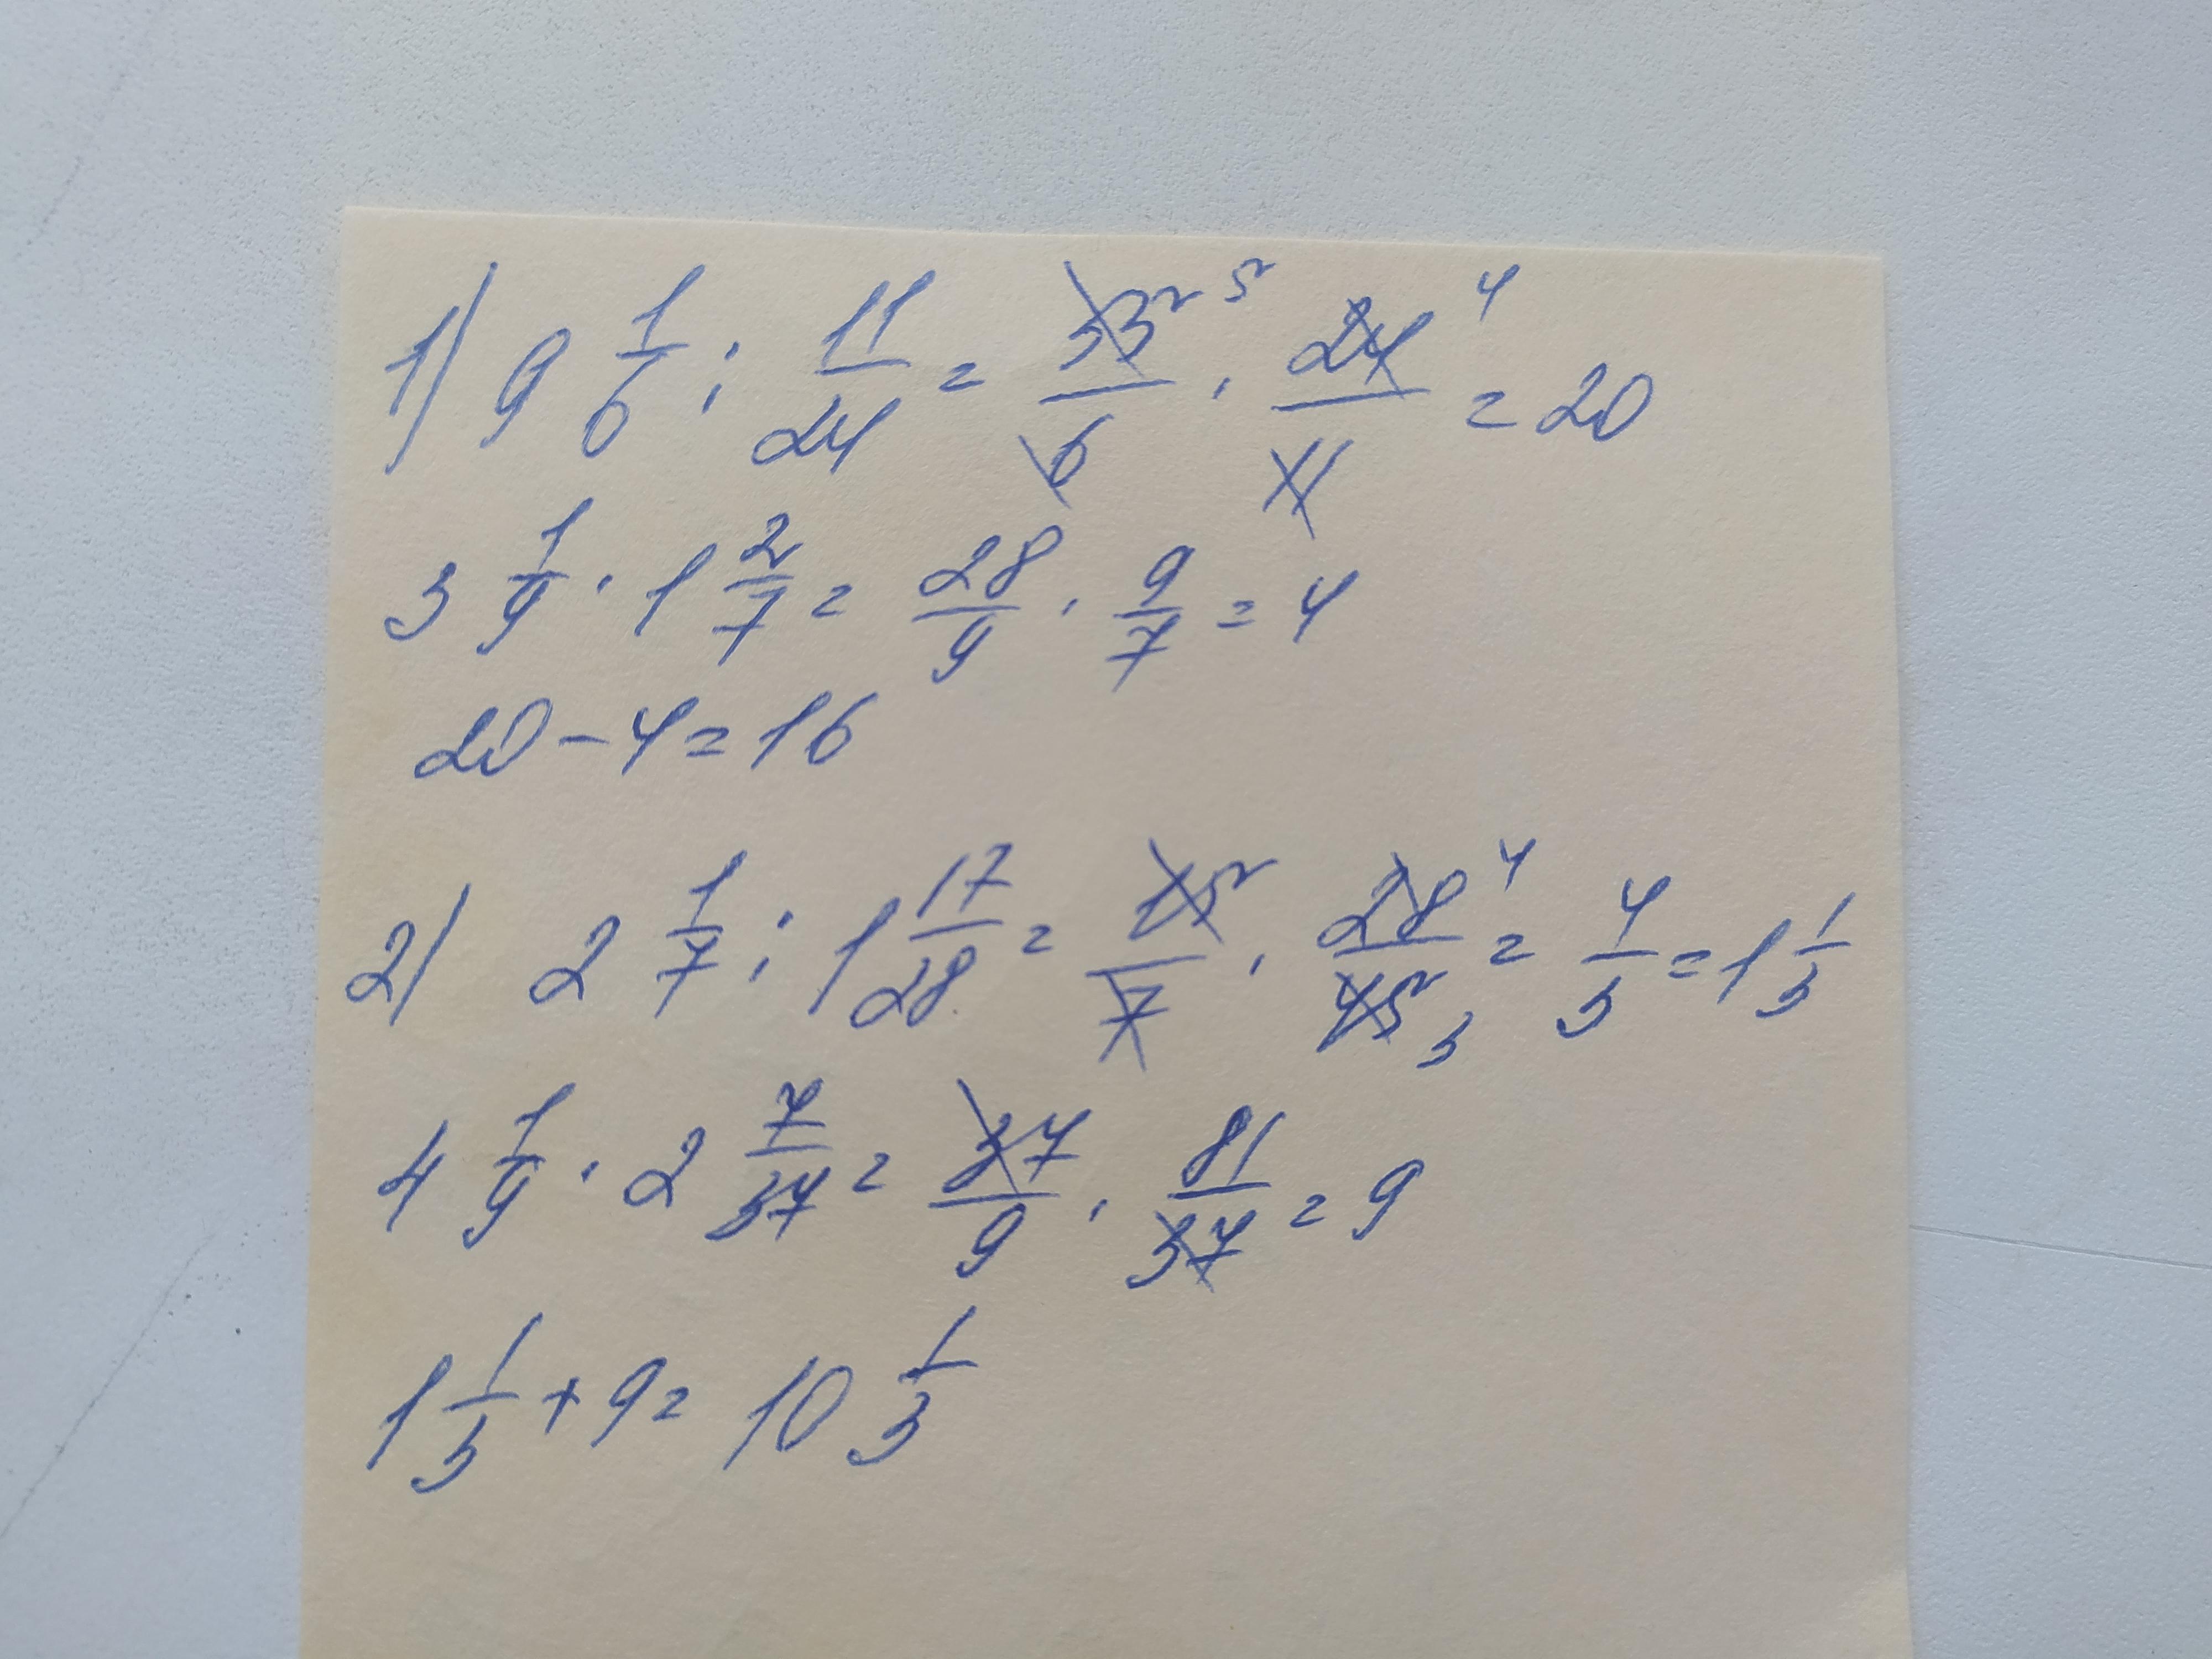 1) 9 1/6 : 11/24 = 55/6 5 · 24/11 4 = 20
3 1/9 · 1 2/7 = 28/9 · 9/7 = 4
20 - 4 = 16
2) 2 1/7 : 1 17/28 = 15/7 · 28/45 4 3 = 4/3 = 1 1/3
4 1/9 · 2 7/37 = 37/9 · 81/37 = 9
1 1/3 + 9 = 10 1/3